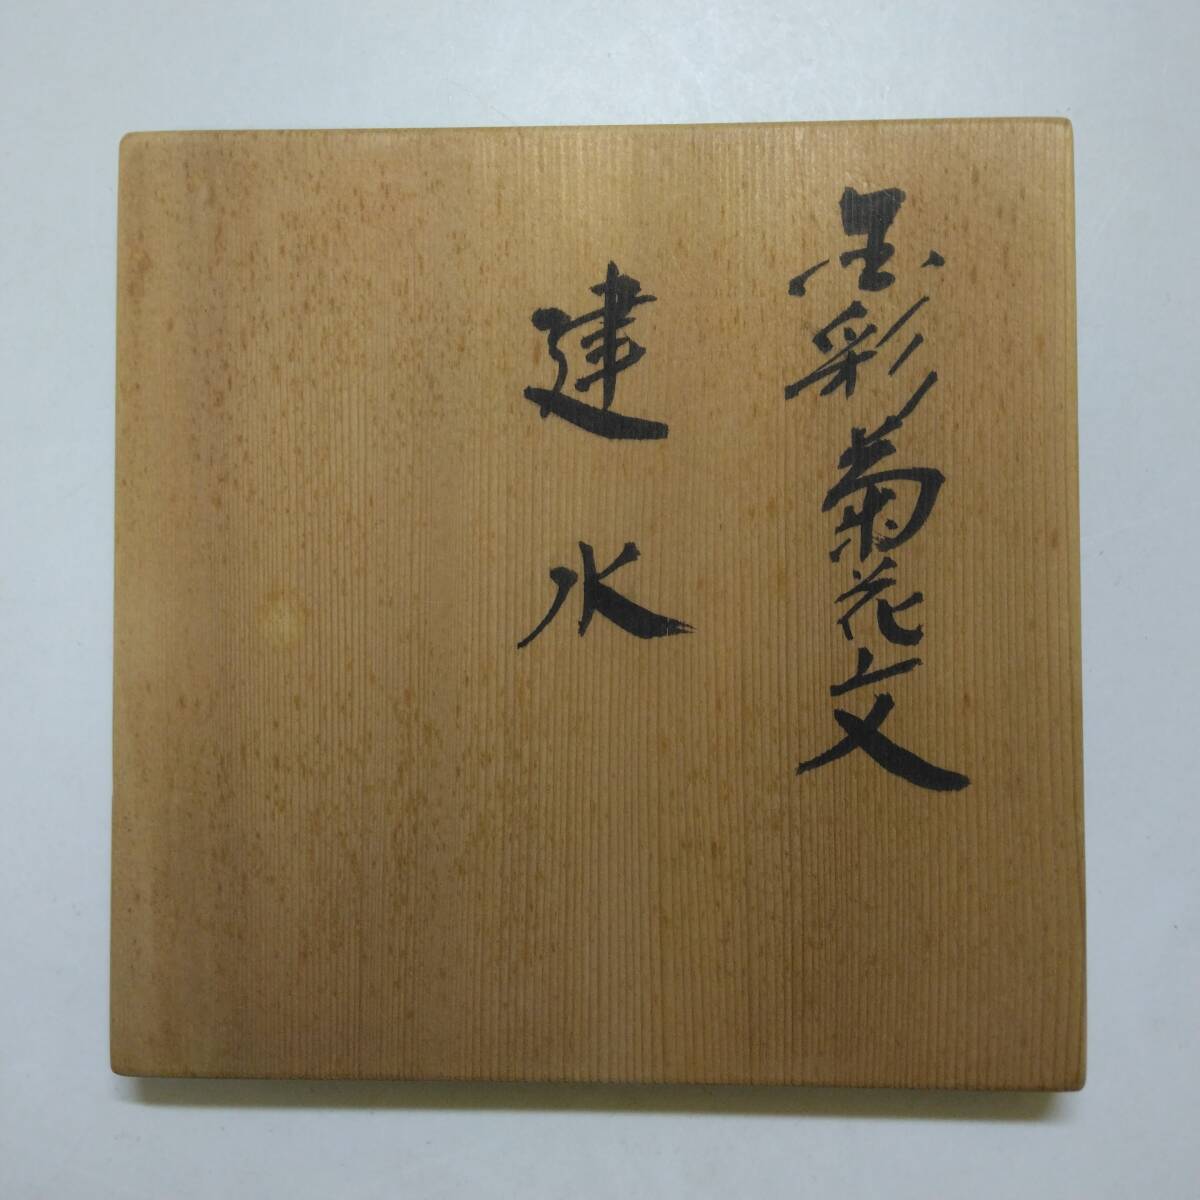 墨彩菊花文
建水